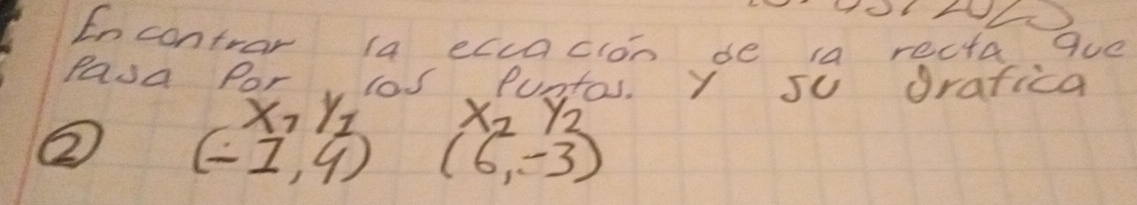 Encontrar la eccación de la recta que
Pasa Por los Puntos. Y su Grafica
X₁ Y₁ X₂ Y₂
② (-1,4) (6,-3)